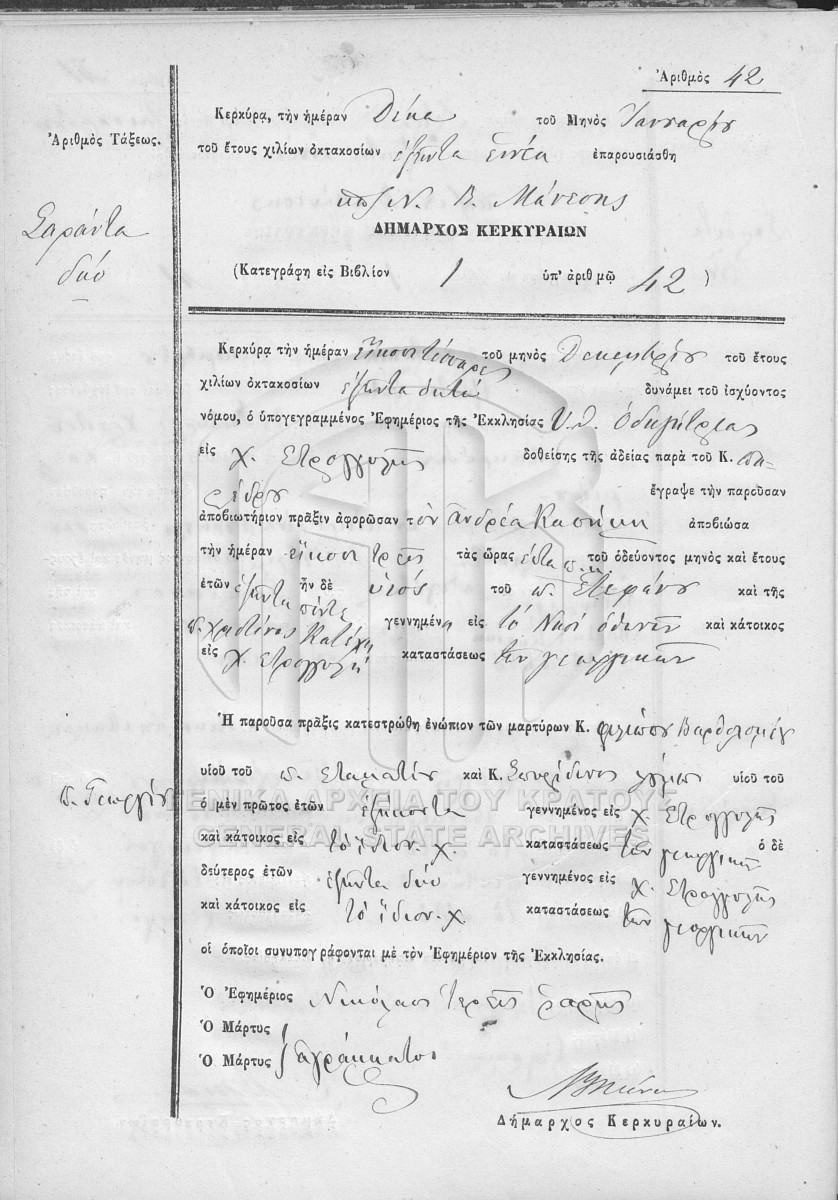 Ἀριθμὸς 42
Κερκύρᾳ, τὴν ἡμέραν Δέκα τοῦ Μηνὸς Ἰανουαρίου
Ἀριθμὸς Τάξεως.
τοῦ ἔτους χιλίων ὀκτακοσίων ἑξῆντα ἐννέα ἐπαρουσιάσθη
Ν. Β. Μάνεσης
Σαράντα
δύο
ΔΗΜΑΡΧΟΣ ΚΕΡΚΥΡΑΙΩΝ
(Κατεγράφη εἰς Βιβλίον 1 ὑπ' ἀριθμῷ 42)
Κερκύρᾳ τὴν ἡμέραν εἴκοσι τέσσαρες τοῦ μηνὸς Δεκεμβρίου τοῦ ἔτους
χιλίων ὀκτακοσίων ἑξῆντα ὀκτώ δυνάμει τοῦ ἰσχύοντος
νόμου, ὁ ὑπογεγραμμένος Ἐφημέριος τῆς Ἐκκλησίας Υ.Θ. Ὁδηγήτριας
εἰς χ. Στρογγυλῆς δοθείσης τῆς ἀδείας παρὰ τοῦ Κ. Πα-
ρέδρου ἔγραψε τὴν παροῦσαν
ἀποβιωτήριον πρᾶξιν ἀφορῶσαν τὸν Ἀνδρέα ἀποβιώσα
τὴν ἡμέραν εἴκοσι τρεῖς τὰς ὥρας τοῦ ὁδεύοντος μηνὸς καὶ ἔτους
ἐτῶν ἑξῆντα πέντε ἦν δὲ υἱός τοῦ π. Στεφάνου καὶ τῆς
π. Χριστίνας γεννημένη εἰς τὸ καὶ κάτοικος
εἰς χ. Στρογγυλή καταστάσεως τῶν γεωργικῶν
Ἡ παροῦσα πρᾶξις κατεστρώθη ἐνώπιον τῶν μαρτύρων Κ. Φιλίππου Βαρθολομέου
υἱοῦ τοῦ π. Σταματίου καὶ Κ. Σπυρίδωνος υἱοῦ τοῦ
π. Γεωργίου
ὁ μὲν πρῶτος ἐτῶν ἑξήκοντα γεννημένος εἰς χ. Στρογγυλῆς
καὶ κάτοικος εἰς τὸ ἴδιον χ. καταστάσεως τῶν γεωργικῶν ὁ δὲ
δεύτερος ἐτῶν ἑξῆντα δύο γεννημένος εἰς χ. Στρογγυλῆς
καὶ κάτοικος εἰς τὸ ἴδιον χ καταστάσεως τῶν γεωργικῶν
οἱ ὁποῖοι συνυπογράφονται μὲ τὸν Ἐφημέριον τῆς Ἐκκλησίας.
Ὁ Ἐφημέριος Νικόλαος Ἱερεὺς
Ὁ Μάρτυς
Ὁ Μάρτυς ἀγράμματοι
Δήμαρχος Κερκυραίων.
ΓΕΝΙΚΑ ΑΡΧΕΙΑ ΤΟΥ ΚΡΑΤΟΥΣ
GENERAL STATE ARCHIVES